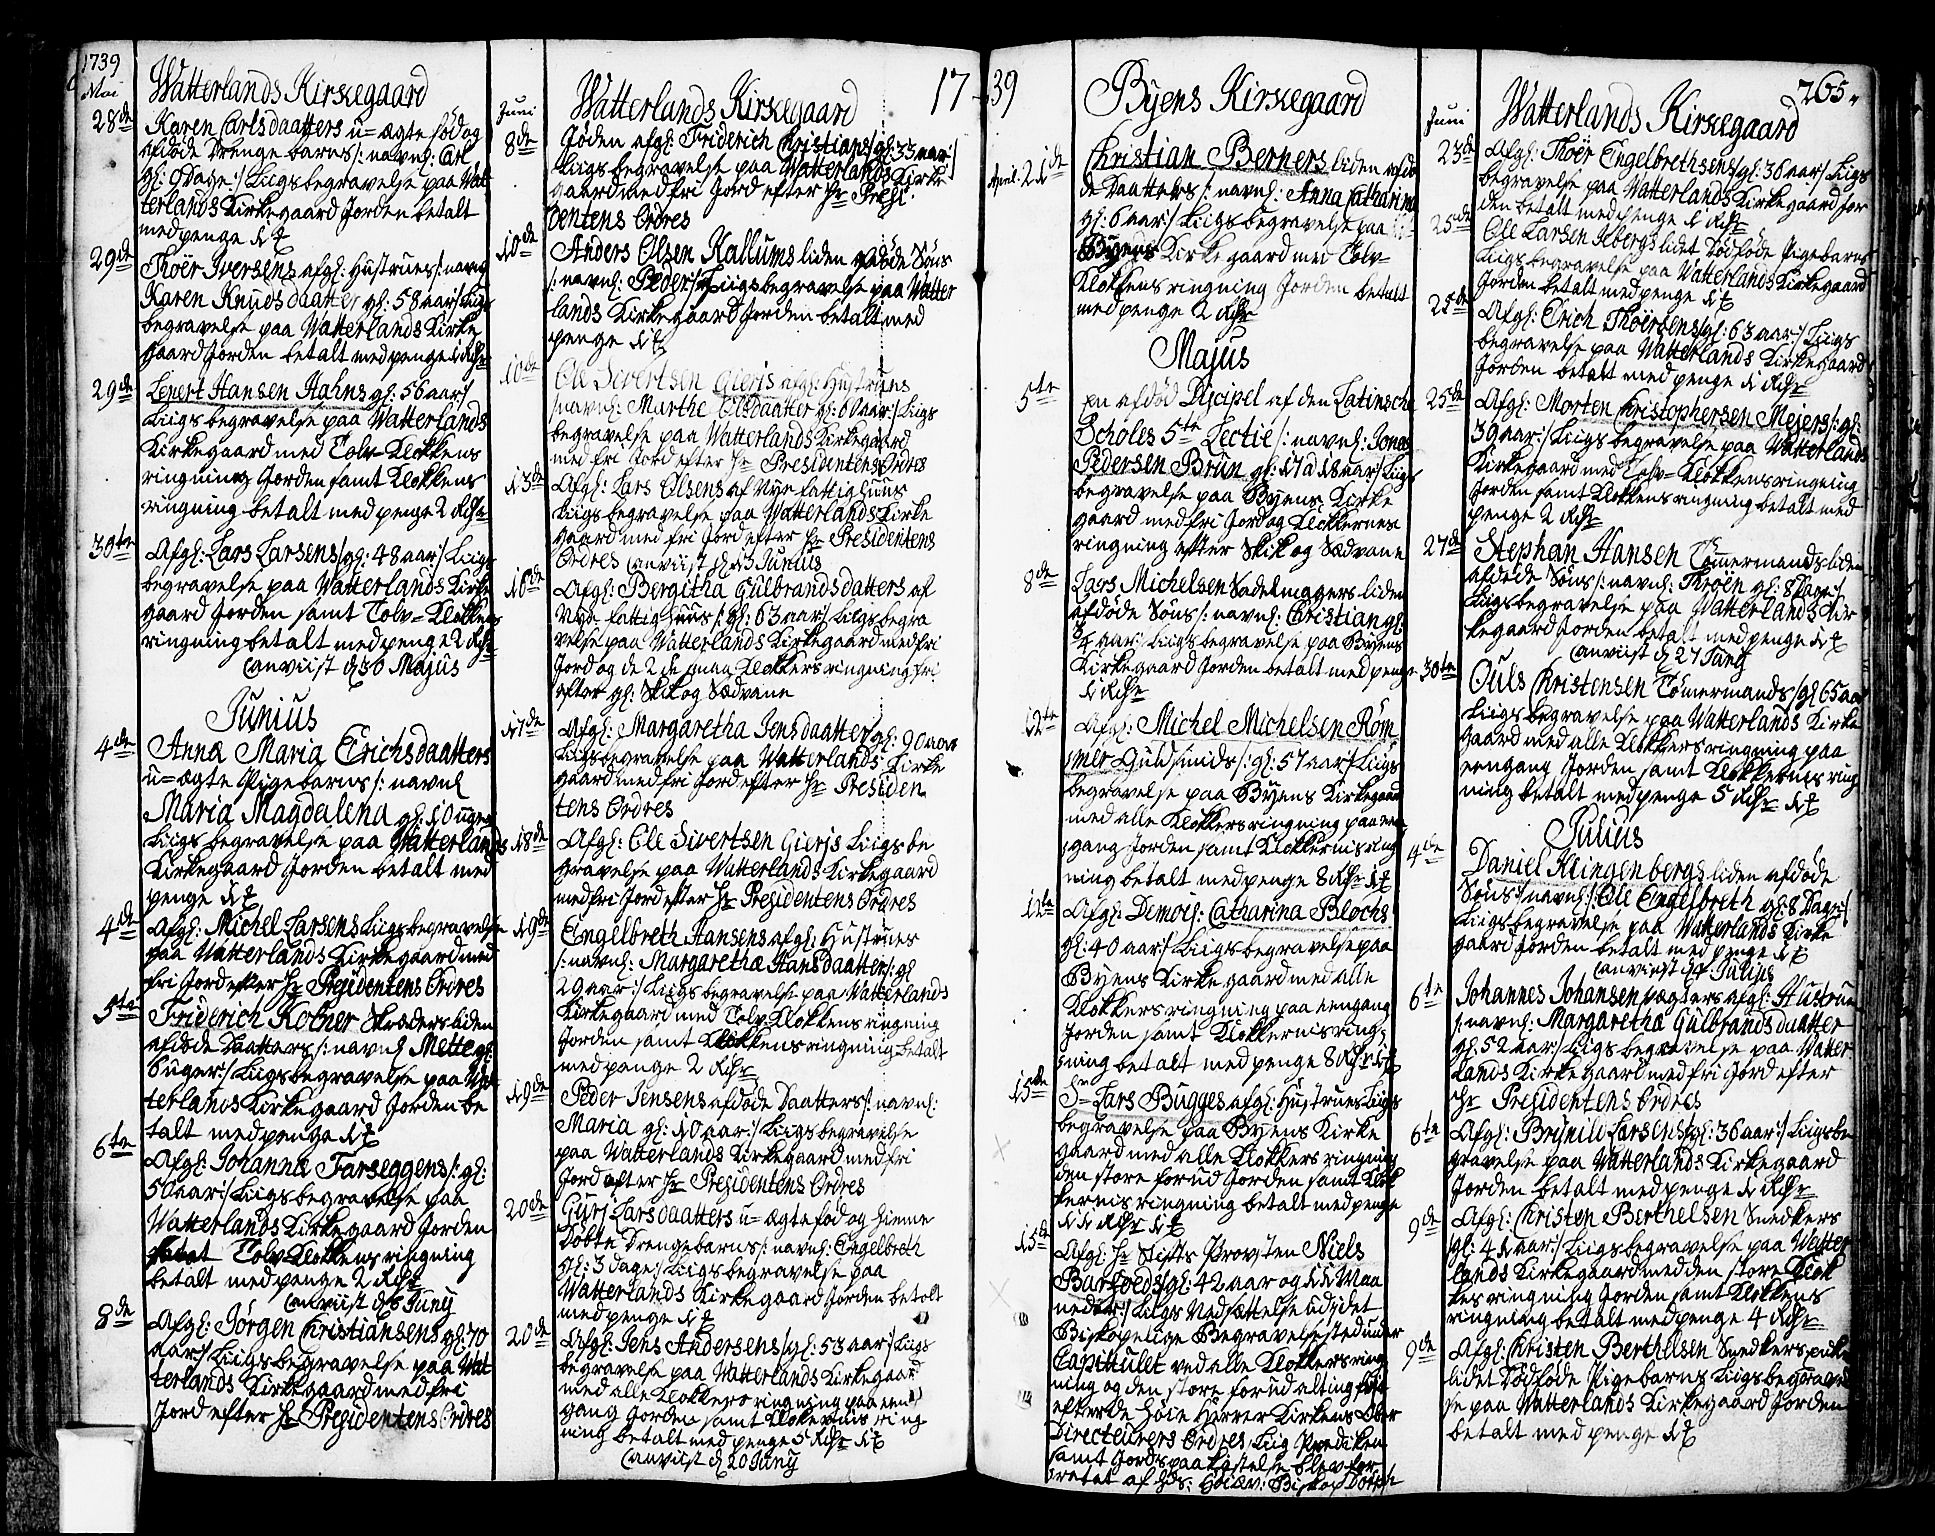 1739
Mai
Watterlands Kirkegaard
28de
Karen Carlsdaatters u=ægte fød og
afdøde Drenge barns /: navnl: Carl
gl: 9 dage :/ Liigs begravelse paa Wat
terlands Kirkegaard Jorden betalt
med penge 1 ƭ
29de
Thoër Iversens afgl: Hustrues /: navnl
Karen Knudsdaatter gl: 58 aar :/ Liigs
begravelse paa Watterlands Kirke
gaard Jorden betalt med penge 1 Rdr
29de
Lenert Hansen Hahns gl: 56 aar :/
Liigs begravelse paa Watterlands
Kirkegaard med Tolv Klokkens
ringning Jorden samt Klokkens
ringning betalt med penge 2 Rdr
30te
Afgl: Lars Larsens /: gl: 48 aar :/ Liigs
begravelse paa Watterlands Kirke
gaard Jorden samt Tolv=Klokkens
ringning betalt med penge 2 Rdr
anviist d 30 Majus
Junius
4de
Anna Maria Erichsdaatters
u=ægte Pigebarns /: navnl
Maria Magdalena gl: 10 uger
Liigs begravelse paa Watterlands
Kirkegaard Jorden betalt med
penge 1 ƭ
4de
Afgl: Michel Larsens Liigs begravelse
paa Watterlands Kirkegaard med
fri Jord efter Hr Præsidentens Ordres
5te
Friderich Kofner Skræders liden
afdøde Daatters /: navnl Mette gl:
6 uger :/ Liigs begravelse paa Wat
terlands Kirkegaard Jorden be
talt med penge 1 ƭ
6te
Afgl: Johanna Farseggens /: gl:
50 aar :/ Liigs begravelse paa
Watterlands Kirkegaard Jorden
samt Tolv Klokkens ringning
betalt med penge 2 Rdr
anviist d 6 Juny
8de
Afgl: Jørgen Christiansens gl: 70
aar :/ Liigs begravelse paa Wat
terlands Kirkegaard med fri
Jord efter Hr Presidentens Ordres
Juni
Watterlands Kirkegaard
17
8de
Jøden afgl: Friderich Christians /: gl: 33 aar :/
Liigs begravelse paa Watterlands Kirke
gaard med fri Jord efter Hr Presi
dentens Ordres
10de
Anders Olsen Kallums liden afdøde Søns
/: navnl: Peder :/ Liigs begravelse paa Watter
lands Kirkegaard Jorden betalt med
penge 1 ƭ
10de
Ole Sivertsen Gieris afgl: Hustrues
/: navnl: Marthe Olsdaatter gl: 60 aar :/ Liigs
begravelse paa Watterlands Kirkegaard
med fri Jord efter Hr Presidentens Ordres
13de
Afgl: Lars Olsens af Nye fattighuus
Liigs begravelse paa Watterlands Kirke
gaard med fri Jord efter Hr Presidentens
Ordres anviist d 13 Junius
16de
Afgl: Bergitha Gulbrandsdatters af
Nye fattighuus /: gl: 63 aar :/ Liigs begra
velse paa Watterlands Kirkegaard med fri
Jord og de 2de smaa Klokkers ringning fri
efter gl: Skik og Sædvane
17de
Afgl: Margaretha Jensdaatter gl: 90 aar
Liigs begravelse paa Watterlands Kirke
gaard med fri Jord efter Hr Presiden
tens Ordres
18de
Afgl: Ole Sivertsen Gierjs Liigs be
gravelse paa Watterlands Kirkegaard
med fri Jord efter Hr Presidentens Ordres
19de
Engelbreth Hansens afgl: Hustrues
/: navnl: Margaretha Hansdaatter /: gl
29 aar :/ Liigs begravelse paa Watterlands
Kirkegaard med Tolv Klokkens ringning
Jorden samt Klokkens ringning betalt
med penge 2 Rdr
19de
Peder Jensens afdøde Daatters /: navnl:
Maria gl: 10 aar :/ Liigs begravelse
paa Watterlands Kirkegaard med fri
Jord efter Hr Presidentens Ordres
20de
Gurj Larsdaatters u=ægte fød og hieme
Døbte Drengebarns /: navnl: Engelbreth
gl: 3 dage :/ Liigs begravelse paa
Watterlands Kirkegaard Jorden betalt
med penge 1 ƭ
20de
Afgl: Jens Andersens /: gl: 53 aar :/ Liigs
begravelse paa Watterlands Kirkegaar
med alle Klokkers ringning paa een
gang Jorden samt Klokkernis ring
ning betalt med penge 5 Rdr 1 ƭ
anviist d 20 Juny
39
Byens Kirkegaard
April 21de
Christian Berners liden afdø
de Daatters /: navnl: Anna Catharina
gl: 6 aar :/ Liigs begravelse paa
Byens Kirkegaard med Tolv
Klokkens ringning Jorden betalt
med penge 2 Rdr
Majus
5te
En afdød Discipel af den Latinsche
Scholes 5te Lectie /: navnl: Jonas
Pedersen Brun gl: 17 a 18 aar :/ Liigs
begravelse paa Byens Kirke
gaard med fri Jord og Klokkernes
ringning efter Skik og Sædvane
8de
Lars Michelsen Sadelmagers liden
afdøde Søns /: navnl: Christian gl:
3/4 aar :/ Liigs begravelse paa Byens
Kirkegaard Jorden betalt med penge
1 Rdr
12te
Afgl: Michel Michelsen Röm
mler Guldsmids /: gl: 57 aar :/ Liigs
begravelse paa Byens Kirkegaard
med alle Klokkers ringning paa en
gang Jorden samt Klokkernis ring
ning betalt med penge 8 Rdr 1 ƭ
12te
Afgl: Demois: Catharina Blochs
gl: 40 aar :/ Liigs begravelse paa
Byens Kirkegaard med alle
Klokkers ringning paa eengang
Jorden samt Klokkernis ring
ning betalt med penge 8 Rdr 1 ƭ
15de
Hr Lars Bugges afgl: Hustrues Liigs
begravelse paa Byens Kirke
gaard med alle Klokkers ringning
den store forud Jorden samt Klok
kernis ringning betalt med penge
11 Rdr 1 ƭ
15de
Afgl: Hr Stifts Provsten Niels
Barfoeds /: gl: 42 aar og 11 Maa
neder :/ Liigs Nedsættelse udj det
Biskopelige Begravelse sted under
Capitulet ved alle Klokkers ring
ning og den store forud alting frit
efter de høie Herrer Kirkens Ober
Directeurers Ordres, Liig Prediken
samt Jords paa kastelse blev for
retat af Hds: Høiæv: Biskop
265.
Juni
Watterlands Kirkegaard
23de
Afgl: Thoër Engelbrethsens /: gl: 36 aar :/ Liigs
begravelse paa Watterlands Kirkegaard Jor
den betalt med penge 1 Rdr
25de
Ole Larsen Ilbergs lidet Dødføde Pigebarns
Liigs begravelse paa Watterlands Kirkegaard
Jorden betalt med penge 1 ƭ
25de
Afgl: Erich Thoërsens /: gl: 63 aar :/ Liigs
begravelse paa Watterlands Kirkegaard
Jorden betalt med penge 1 Rdr
25de
Afgl: Morten Christophersen Mejers /: gl:
39 aar :/ Liigs begravelse paa Watterlands
Kirkegaard med Tolv=Klokkens ringning
Jorden samt Klokkens ringning betalt med
penge 2 Rdr
27de
Stephan Hansen Tømermands liden
afdøde Søns /: navnl: Throën gl: 8 Dage :/
Liigs begravelse paa Watterlands Kir
kegaard Jorden betalt med penge 1 ƭ
anviist d 27 Juny
30te
Ouls Christensen Tømermands /: gl 65 aar
Liigs begravelse paa Watterlands Kirke
gaard med alle Klokkers ringning paa
eengang Jorden samt Klokkernis ring
ning betalt med penge 5 Rdr 1 ƭ
Julius
4de
Daniel Klingenbergs liden afdøde
Søns /: navnl: Ole Engelbreth gl: 8 Dage :/
Liigs begravelse paa Watterlands Kirke
gaard Jorden betalt med penge 1 ƭ
anviist d 4 Julius
6te
Johannes Johansen vægters afgl: Hustrues
/: navnl: Margaretha Gulbrandsdaatter
gl: 52 aar :/ Liigs begravelse paa Watter
lands Kirkegaard med fri Jord efter
Hr Presidentens Ordres
6te
Afgl: Brynild Larsens /: gl: 36 aar :/ Liigs be
gravelse paa Watterlands Kirkegaard
Jorden betalt med penge 1 Rdr
9de
Afgl: Christen Berthelsen Snedkers
/: gl: 41 aar :/ Liigs begravelse paa Watter
lands Kirkegaard med den store Klok
kes ringning Jorden samt Klokkens
ringning betalt med penge 4 Rdr
9de
Afgl: Christen Berthelsen Snedkers enkes
lidet Dødføde Pigebarns Liigs begravel
se paa Watterlands Kirkegaard Jorden
betalt med penge 1 ƭ